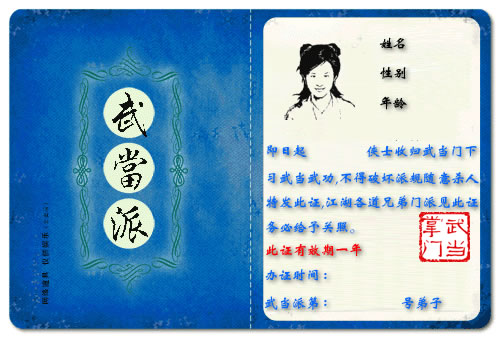 武
當
派
姓名
性别
年龄
即日起 侠士收归武当门下
习武当武功,不得破坏派规随意杀人
特发此证,江湖各道兄弟门派见此证
务必给予关照。
此证有效期一年
办证时间：
武当派第： 号弟子
武当
掌门